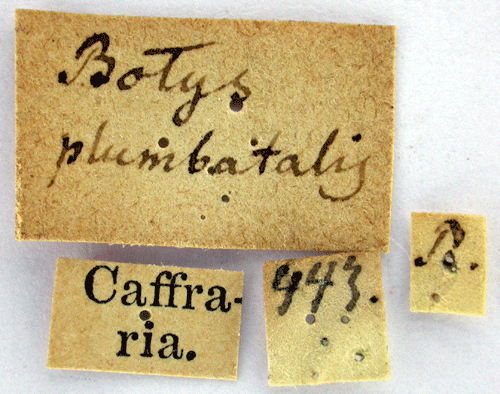 Botys
plumbatalis
Caffra-
ria.
443.
B.